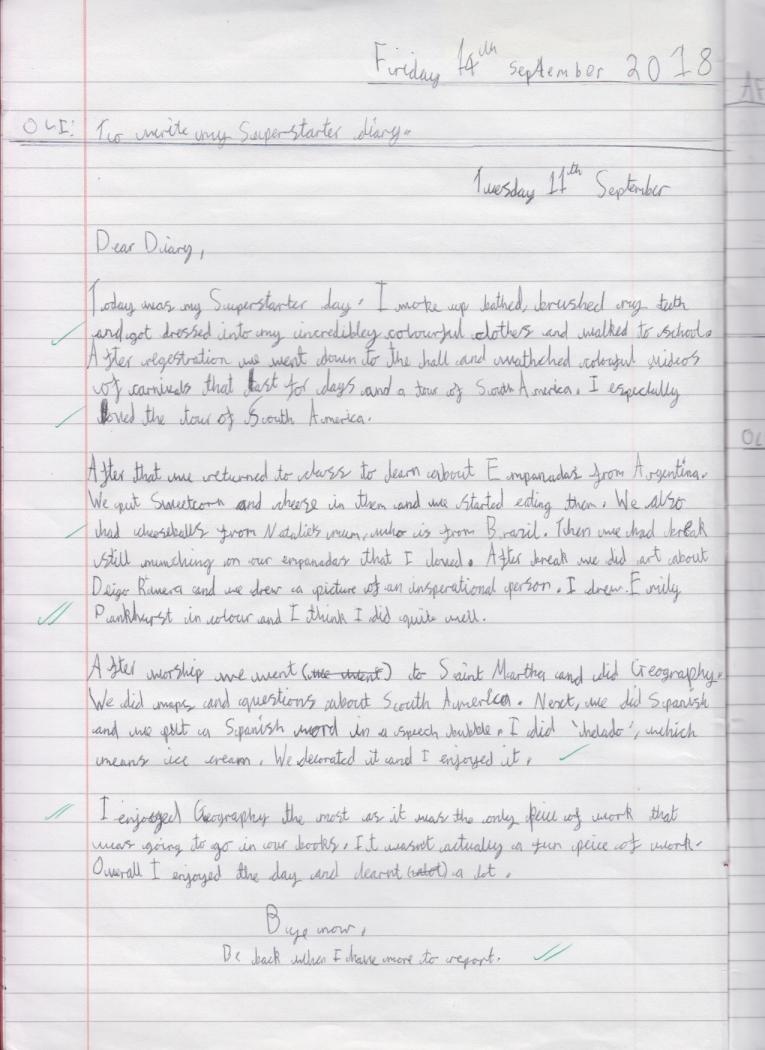 Friday 14th September 2018
AF
OLI: To write my Superstarter diary.
Tuesday 11th September
Dear Diary,
Today was my Superstarter day. I woke up bathed, brushed my teeth
and got dressed into my incredibley colourful clothers and walked to school.
After regestration we went down to the hall and wathched colorful videos
of carnivals that last for days and a tour of South America. I especially
OL
loved the tour of South America.
After that we returned to class to learn about Empanadas from Argentina.
We put Sweetcorn and cheese in them and we started eating them. We also
had cheeseballs from Natalie's mum, who is from Brazil. Then we had break
still munching on our empanadas that I loved. After break we did art about
Deigo Rivera and we drew a picture of an insperational person. I drew Emily
Pankhurst in colour and I think I did quite well.
After worship we went (we went) to Saint Martha and did Geography.
We did maps and questions about South America. Next, we did Spanish
and we put a Spanish word in a speech bubble. I did 'helado', which
means ice cream. We decorated it and I enjoyed it.
I enjoyed Geography the most as it was the only peice of work that
was going to go in our books. It wasn't actually a fun peice of work.
Overall I enjoyed the day and learnt (alot) a lot.
Bye now,
Be back when I have more to report.